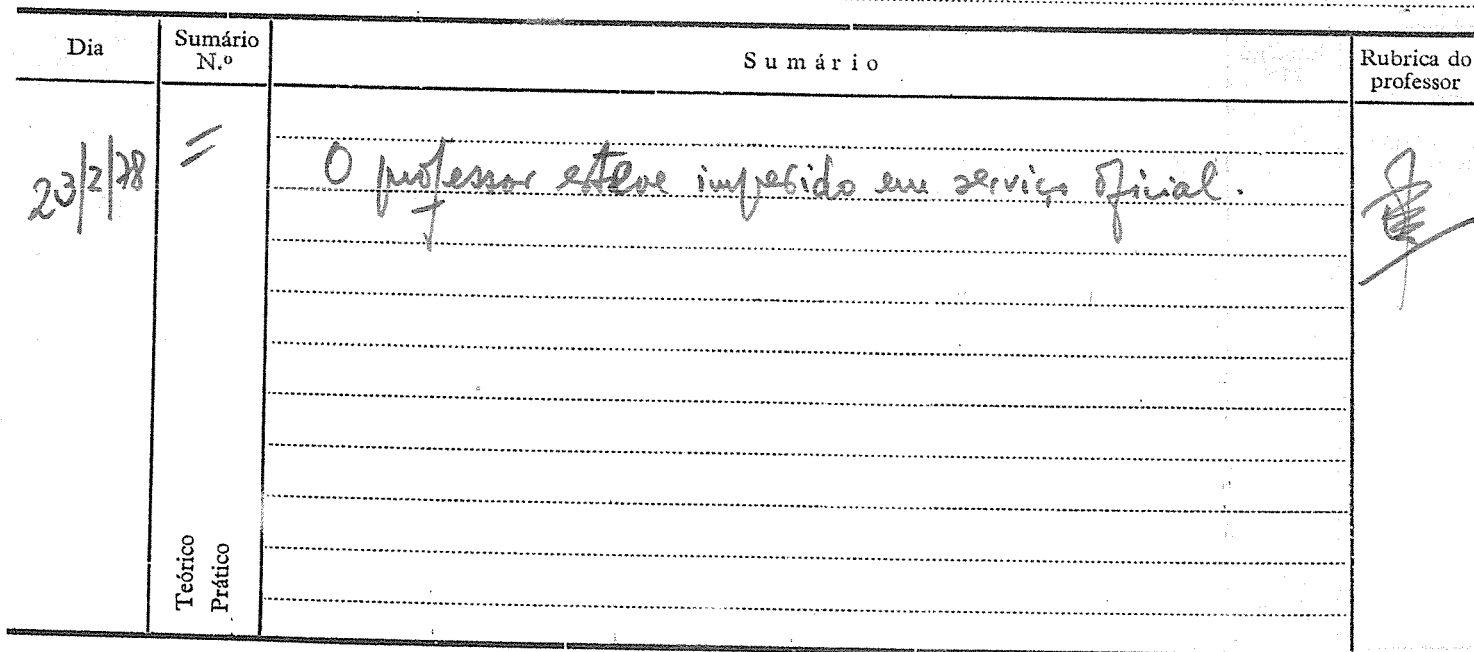 Dia
Sumário N.º
Sumário
Rubrica do professor
23/2/78
=
O professor esteve impedido em serviço oficial.
Teórico
Prático